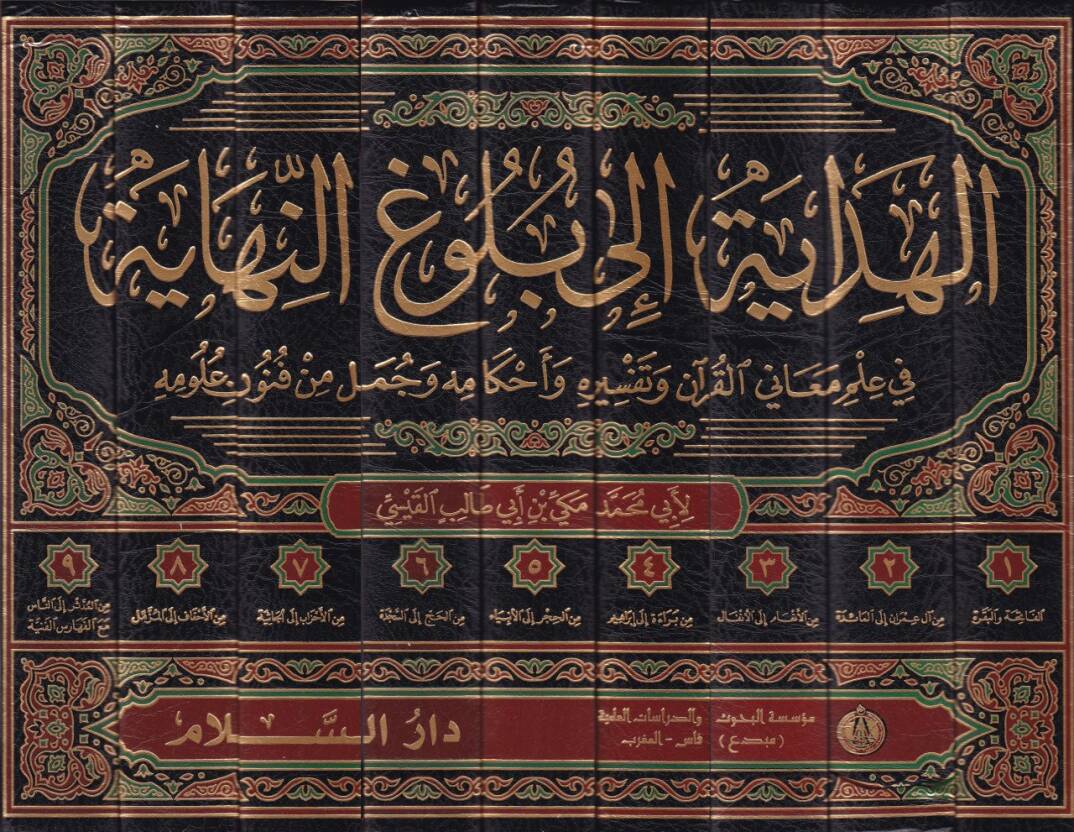 الهَدَايَةُ إِلَى بُلُوغِ النِّهَايَةِ
فِي عِلْمِ مَعَانِي القُرْآنِ وَتَفْسِيرِهِ وَأَحْكَامِهِ وَجُمَلٍ مِنْ فُنُونِ عُلُومِهِ
لِأَبِي مُحَمَّد مَكِّيِّ بْنِ أَبِي طَالِبٍ القَيْسِيِّ
١
الفاتحة والبقرة
٢
من آل عمران إلى المائدة
٣
من الأنعام إلى الأنفال
٤
من براءة إلى إبراهيم
٥
من الحجر إلى الأنبياء
٦
من الحج إلى السجدة
٧
من الأحزاب إلى الجاثية
٨
من الأحقاف إلى المزمل
٩
من المدثر إلى الناس
مع الفهارس الفنية
مؤسسة البحوث والدراسات العلمية
(مبدع) فاس - المغرب
دارُ السَّلام